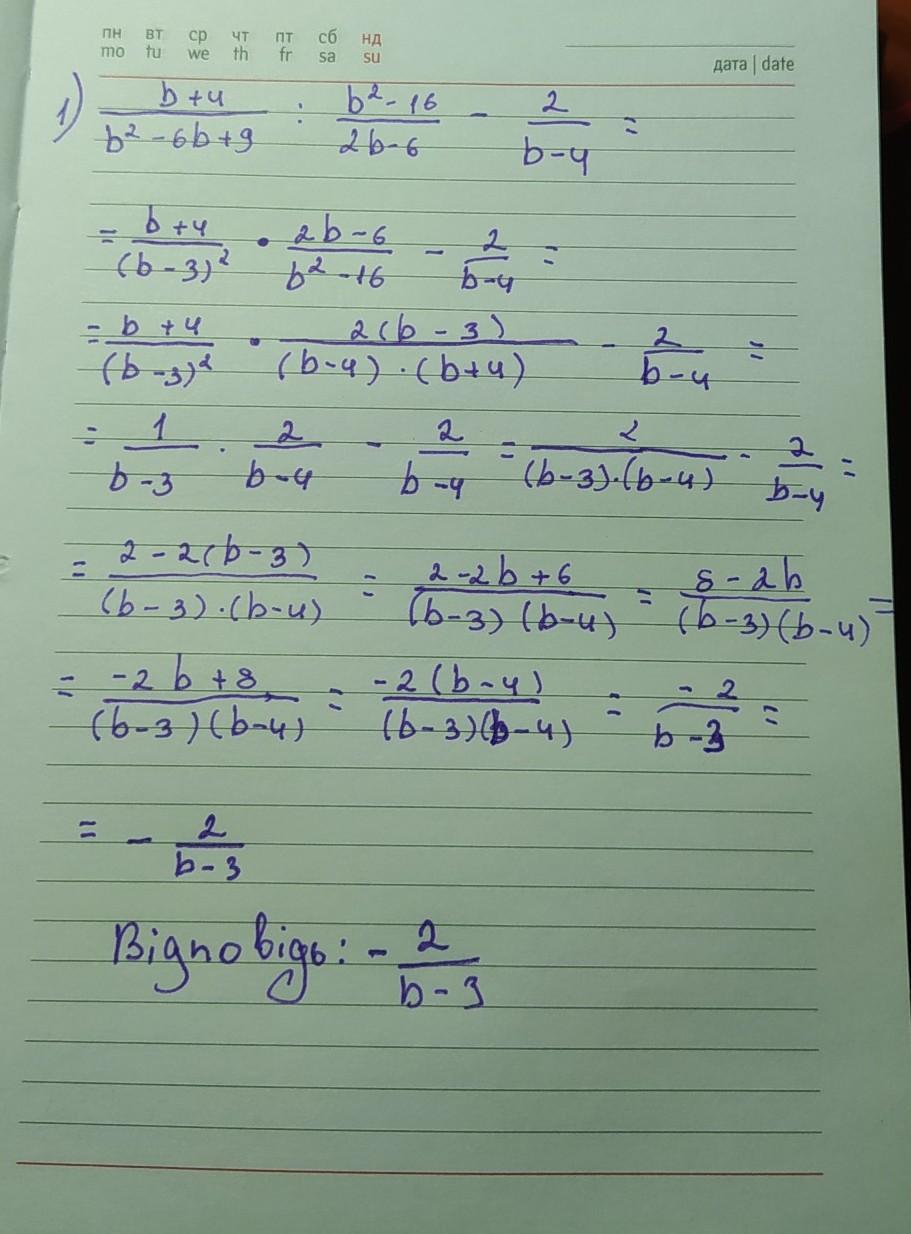 пн вт ср чт пт сб нд
mo tu we th fr sa su
дата | date
1) (b+4)/(b²-6b+9) : (b²-16)/(2b-6) - 2/(b-4) =
= (b+4)/(b-3)² · (2b-6)/(b²-16) - 2/(b-4) =
= (b+4)/(b-3)² · 2(b-3)/((b-4)·(b+4)) - 2/(b-4) =
= 1/(b-3) · 2/(b-4) - 2/(b-4) = 2/((b-3)·(b-4)) - 2/(b-4) =
= (2-2(b-3))/((b-3)·(b-4)) = (2-2b+6)/((b-3)(b-4)) = (8-2b)/((b-3)(b-4)) =
= (-2b+8)/((b-3)(b-4)) = -2(b-4)/((b-3)(b-4)) = -2/(b-3) =
= - 2/(b-3)
Відповідь: - 2/(b-3)